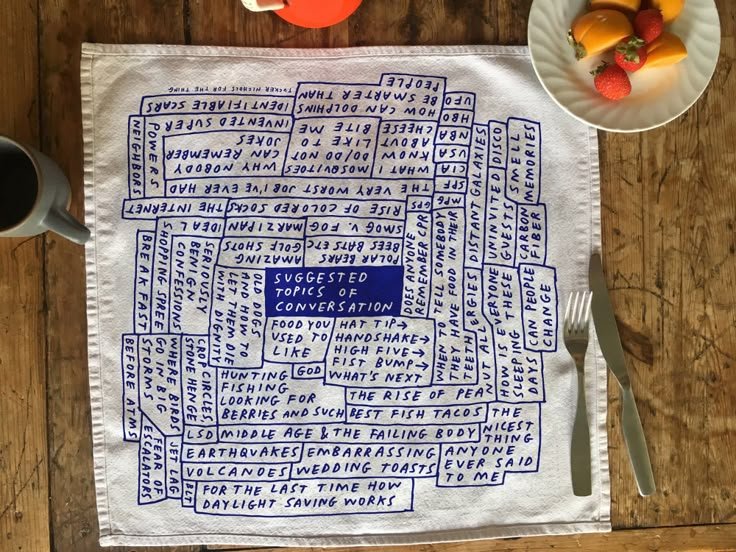 SUGGESTED
TOPICS OF
CONVERSATION
TUCKER NICHOLS FOR THE THING
HOW CAN DOLPHINS
BE SMARTER THAN
PEOPLE
IDENTIFIABLE SCARS
INVENTED SUPER
POWERS
NEIGHBORS
WHY NOBODY
CAN REMEMBER
JOKES
MOSQUITOES
DO/DO NOT
LIKE TO
BITE ME
WHAT
KNOW
ABOUT
CHEESE
UFO
HBO
NBA
USA
CIA
SFF
MPG
GPS
THE VERY WORST JOB I'VE EVER HAD
THE INTERNET
RISE OF COLORED SOCKS
IDEAL
SHOPPING SPREE
MARZIPAN
SMOG V. FOG
AMAZING
GOLF SHOTS
POLAR BEARS
BEES BATS ETC
DOES ANYONE
REMEMBER CPR
WHEN TO TELL SOMEBODY
THEY HAVE FOOD IN THEIR
TEETH
DISTANT GALAXIES
UNINVITED
GUESTS
DISCO
SMELL
MEMORIES
CARBON
FIBER
CAN PEOPLE
CHANGE
HOW IS EVERYONE
SLEEPING THESE
DAYS
THE RISE OF PEANUT ALLERGIES
BREAKFAST
SERIOUSLY
BENIGN
CONFESSIONS
OLD DOGS
AND HOW TO
LET THEM DIE
WITH DIGNITY
FOOD YOU
USED TO
LIKE
HAT TIP→
HANDSHAKE→
HIGH FIVE→
FIST BUMP→
WHAT'S NEXT
GOD
HUNTING
FISHING
LOOKING FOR
BERRIES AND SUCH
CROP CIRCLES,
STONE HENGE
WHERE BIRDS
GO IN BIG
STORMS
BEFORE ATMS
BEST FISH TACOS
THE
NICEST
THING
ANYONE
EVER SAID
TO ME
LSD
MIDDLE AGE & THE FAILING BODY
JET LAG
FEAR OF
ESCALATORS
EARTHQUAKES
VOLCANOES
EMBARRASSING
WEDDING TOASTS
BLT
FOR THE LAST TIME HOW
DAYLIGHT SAVING WORKS